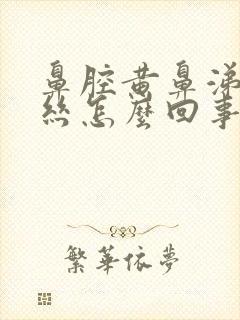 鼻腔黄鼻涕
丝怎麼回事
繁華依夢